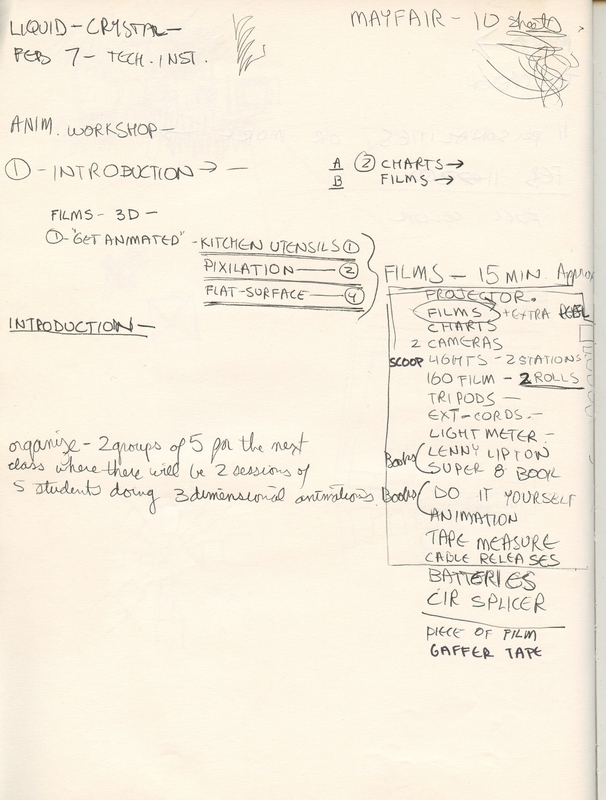 LIQUID-CRYSTAL-
FEB 7 - TECH. INST.
MAYFAIR - 10 sheets
ANIM. WORKSHOP -
① - INTRODUCTION → -
A ② CHARTS →
B FILMS →
FILMS - 3D -
① - "GET ANIMATED" - KITCHEN UTENSILS ①
PIXILATION - ②
FLAT-SURFACE - ④
INTRODUCTION -
FILMS - 15 MIN. Approx
PROJECTOR.
FILMS + EXTRA REEL
CHARTS
2 CAMERAS
SCOOP LIGHTS - 2 STATIONS
160 FILM - 2 ROLLS
TRIPODS -
EXT-CORDS. -
LIGHT METER. -
Books ( LENNY LIPTON
SUPER 8 BOOK
Books ( DO IT YOURSELF
ANIMATION
TAPE MEASURE
CABLE RELEASES
BATTERIES
CIR SPLICER
PIECE OF FILM
GAFFER TAPE
organize - 2 groups of 5 for the next
class where there will be 2 sessions of
5 students doing 3 dimensional animations.